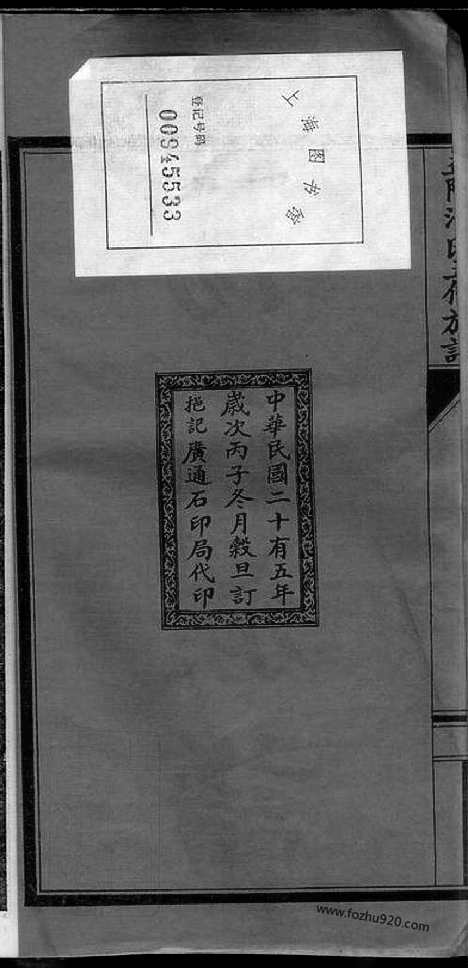 上海图书馆
登记号码
00945533
中華民國二十有五年
歲次丙子冬月穀旦訂
挹記廣通石印局代印
氏五修族譜
www.fozhu920.com